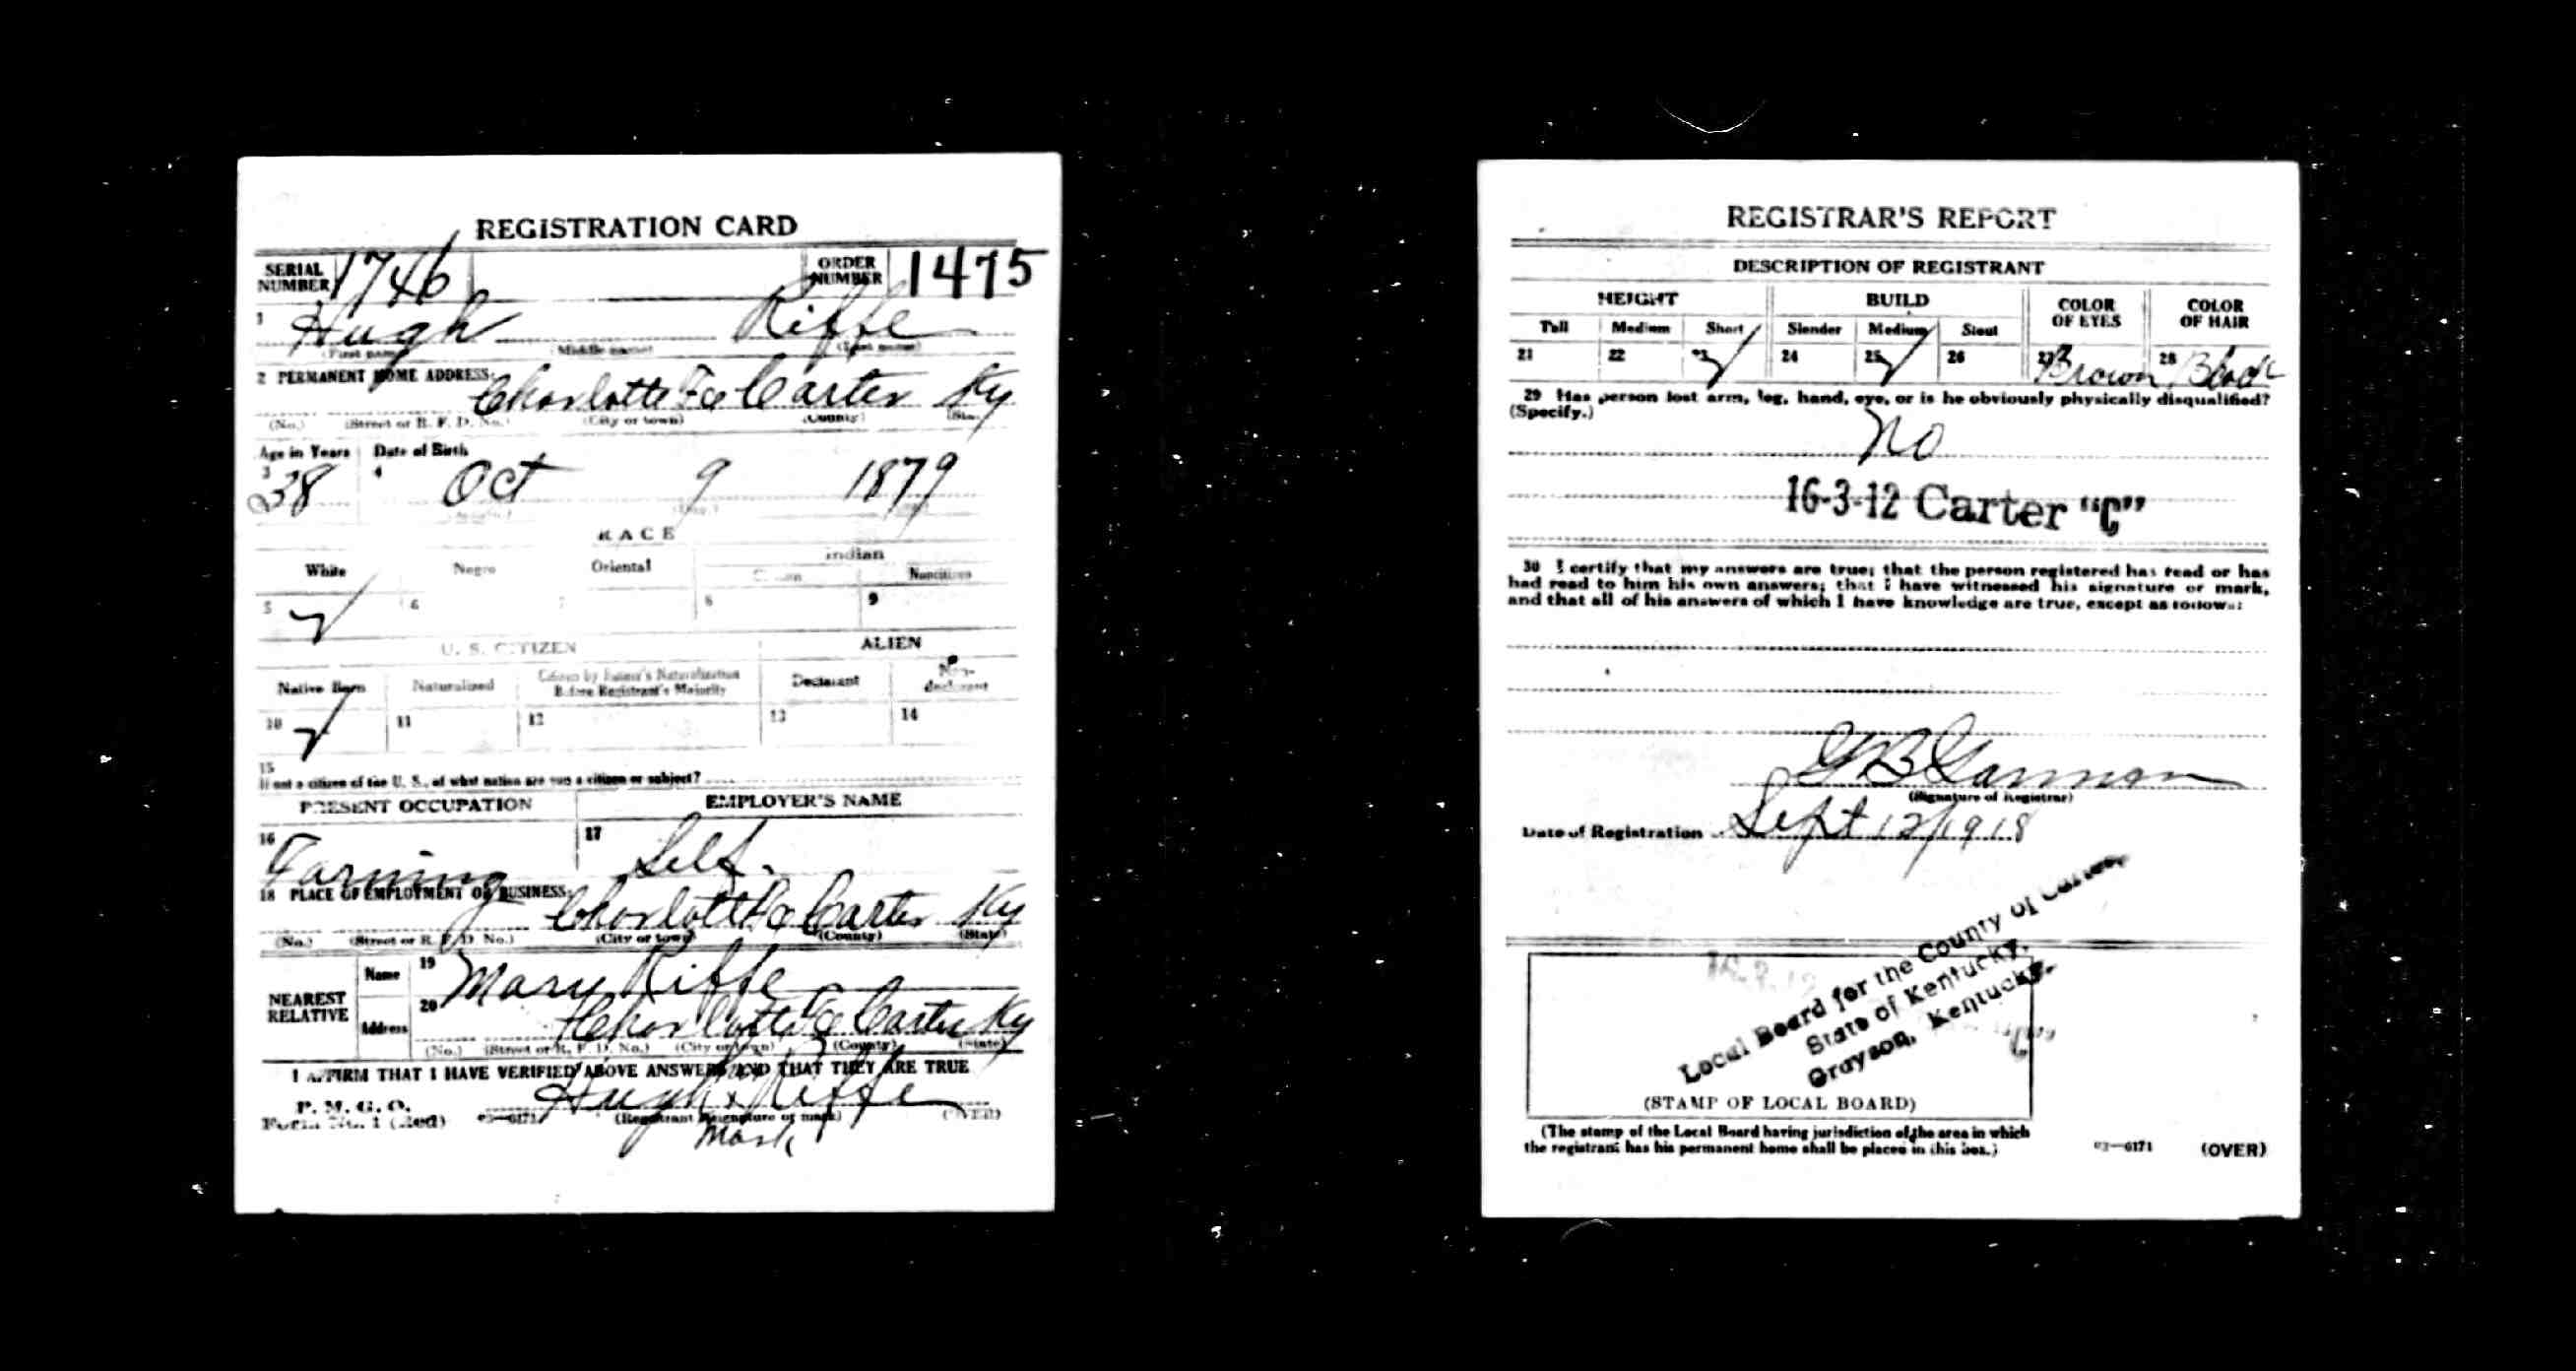 REGISTRATION CARD
SERIAL NUMBER 1746 ORDER NUMBER 1475
1 Hugh Riffe
(First name) (Middle name) (Last name)
2 PERMANENT HOME ADDRESS:
Charlotte Fc Carter Ky
(No.) (Street or R. F. D. No.) (City or town) (County) (State)
Age in Years Date of Birth
3 38 4 Oct 9 1879
(Day.)
RACE
White Negro Oriental Indian
Citizen Noncitizen
5 ✓ 6 7 8 9
U. S. CITIZEN ALIEN
Native Born Naturalized Citizen by Father's Naturalization Before Registrant's Majority Declarant Non-declarant
10 ✓ 11 12 13 14
15
If not a citizen of the U. S., of what nation are you a citizen or subject?
PRESENT OCCUPATION EMPLOYER'S NAME
16 Farming 17 Self.
18 PLACE OF EMPLOYMENT OR BUSINESS:
Charlotte Fc Carter Ky
(No.) (Street or R. F. D. No.) (City or town) (County) (State)
NEAREST RELATIVE Name 19 Mary Riffe
Address 20 Charlotte Fc Carter Ky
(No.) (Street or R. F. D. No.) (City or town) (County) (State)
I AFFIRM THAT I HAVE VERIFIED ABOVE ANSWERS AND THAT THEY ARE TRUE
P. M. G. O.
Form No. 1 (Red) 03—6171 Hugh his x Riffe
(Registrant signature or mark) (OVER)
Mark
REGISTRAR'S REPORT
DESCRIPTION OF REGISTRANT
HEIGHT BUILD COLOR OF EYES COLOR OF HAIR
Tall Medium Short Slender Medium Stout
21 22 23 ✓ 24 25 ✓ 26 27 Brown 28 Black
29 Has person lost arm, leg, hand, eye, or is he obviously physically disqualified?
(Specify.)
No
16-3-12 Carter "C"
30 I certify that my answers are true; that the person registered has read or has
had read to him his own answers; that I have witnessed his signature or mark,
and that all of his answers of which I have knowledge are true, except as follows:
(Signature of Registrar)
Date of Registration Sept 12/1918
Local Board for the County of Carter,
State of Kentucky,
Grayson, Kentucky.
(STAMP OF LOCAL BOARD)
(The stamp of the Local Board having jurisdiction of the area in which
the registrant has his permanent home shall be placed in this box.)
03—6171 (OVER)